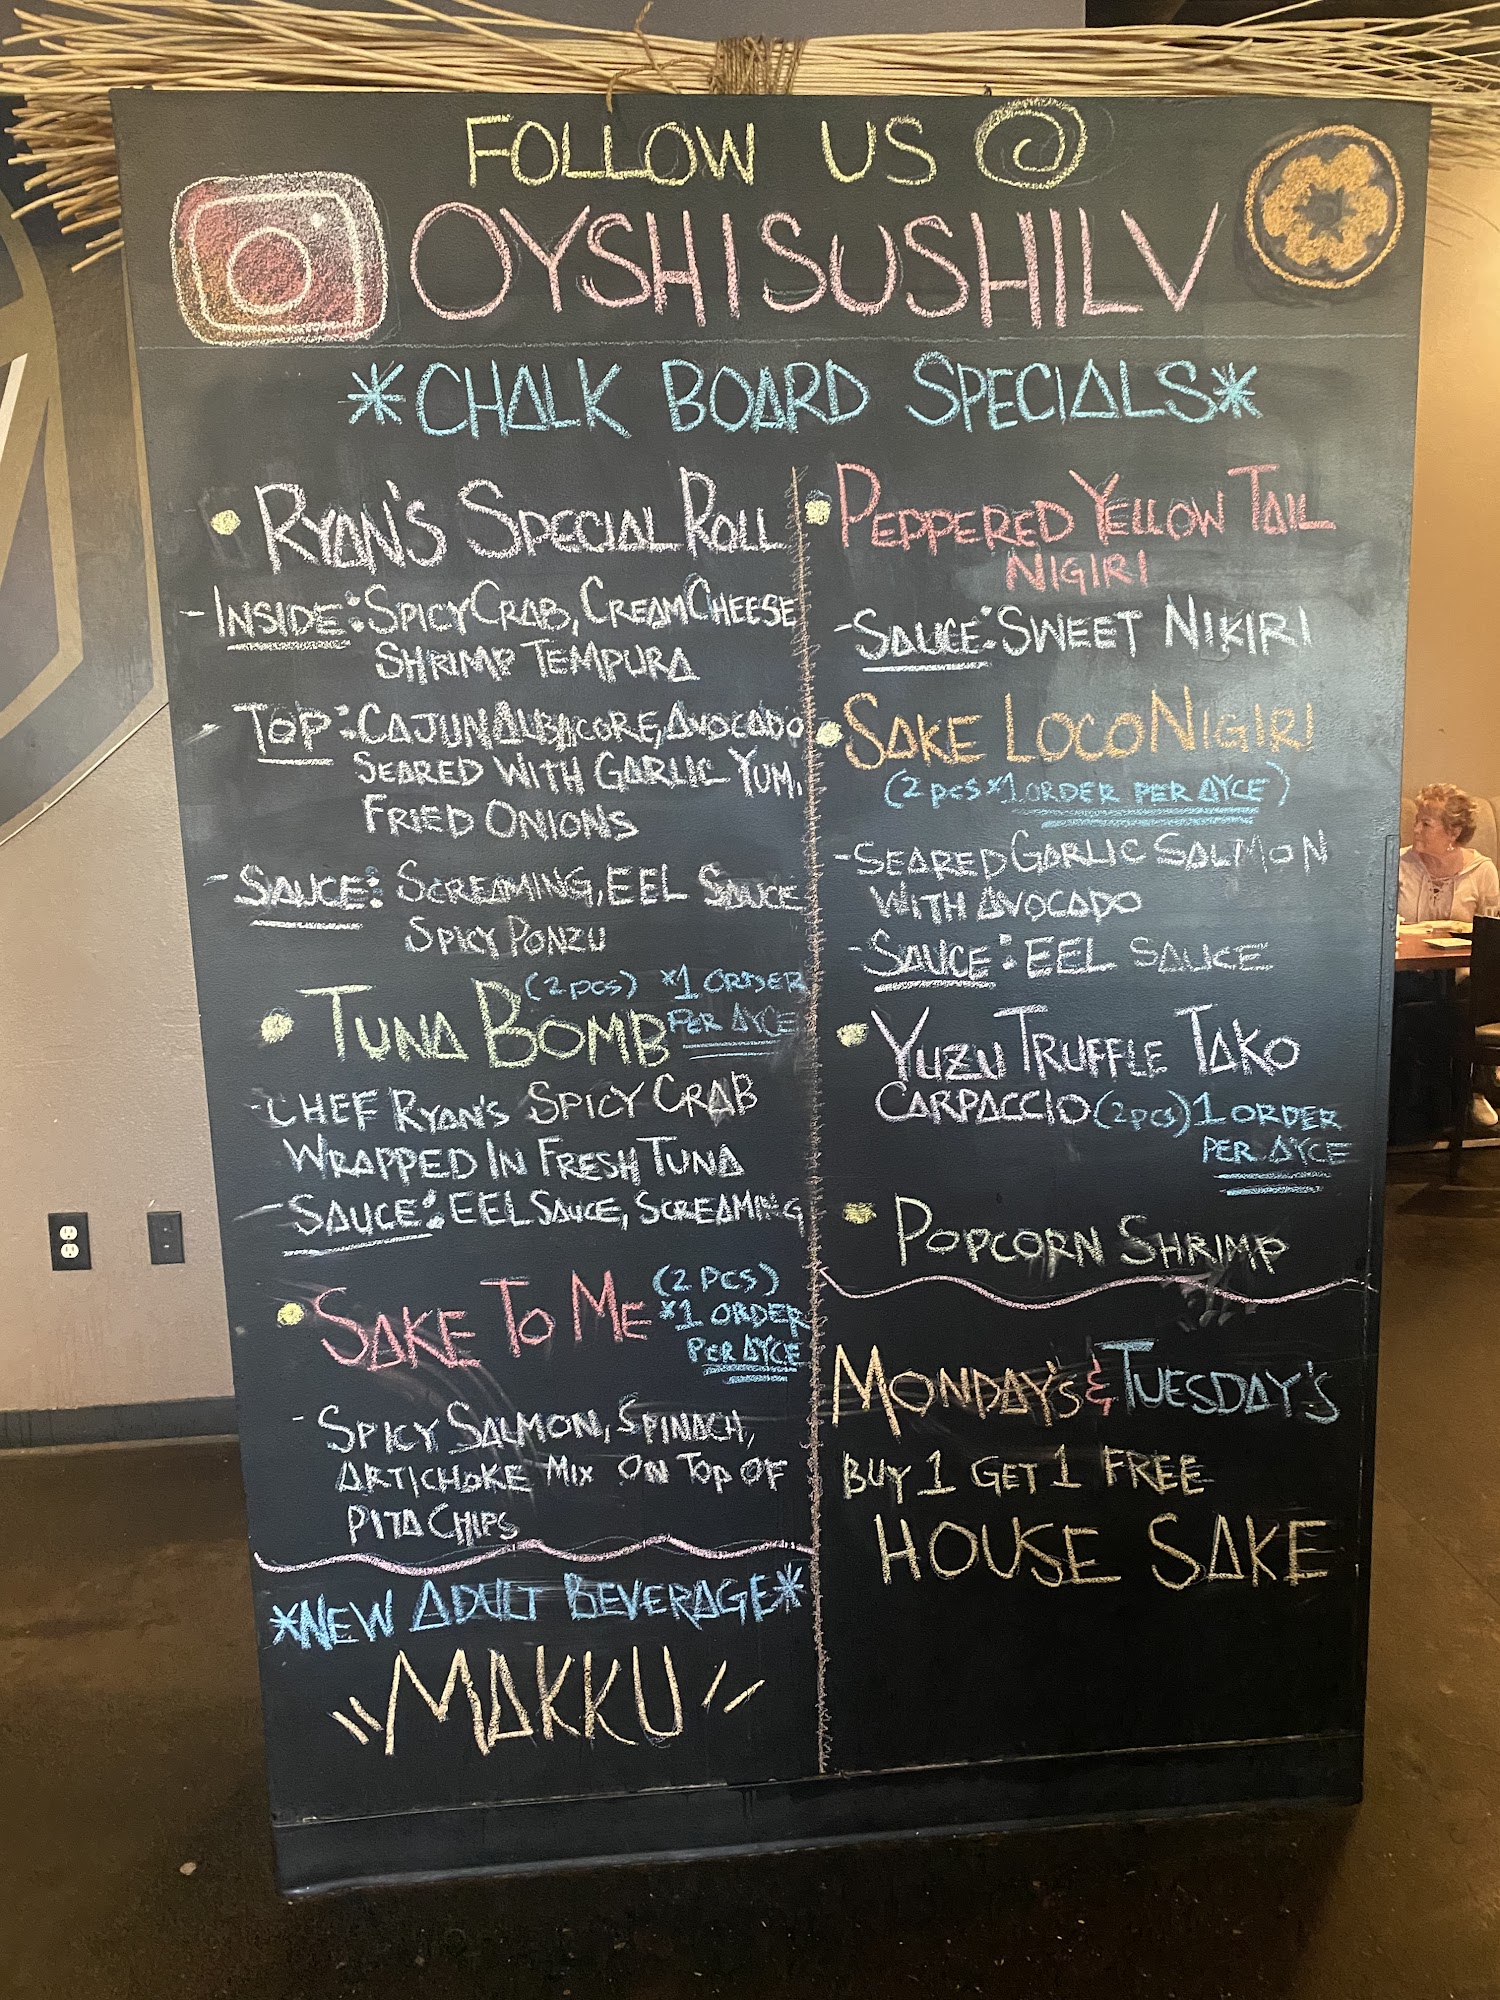 FOLLOW US @
OYSHISUSHILV
*CHALK BOARD SPECIALS*
• RYAN'S SPECIAL ROLL
- INSIDE: SPICY CRAB, CREAM CHEESE
SHRIMP TEMPURA
- TOP: CAJUN ALBACORE, AVOCADO
SEARED WITH GARLIC YUM,
FRIED ONIONS
- SAUCE: SCREAMING, EEL SAUCE
SPICY PONZU
• TUNA BOMB (2 PCS) *1 ORDER
PER AYCE
- CHEF RYAN'S SPICY CRAB
WRAPPED IN FRESH TUNA
- SAUCE: EEL SAUCE, SCREAMING
• SAKE TO ME (2 PCS)
*1 ORDER
PER AYCE
- SPICY SALMON, SPINACH,
ARTICHOKE MIX ON TOP OF
PITA CHIPS
*NEW ADULT BEVERAGE*
MAKKU
• PEPPERED YELLOW TAIL
NIGIRI
- SAUCE: SWEET NIKIRI
• SAKE LOCO NIGIRI
(2 PCS *1 ORDER PER AYCE)
- SEARED GARLIC SALMON
WITH AVOCADO
- SAUCE: EEL SAUCE
• YUZU TRUFFLE TAKO
CARPACCIO (2 PCS) 1 ORDER
PER AYCE
• POPCORN SHRIMP
MONDAY'S & TUESDAY'S
BUY 1 GET 1 FREE
HOUSE SAKE